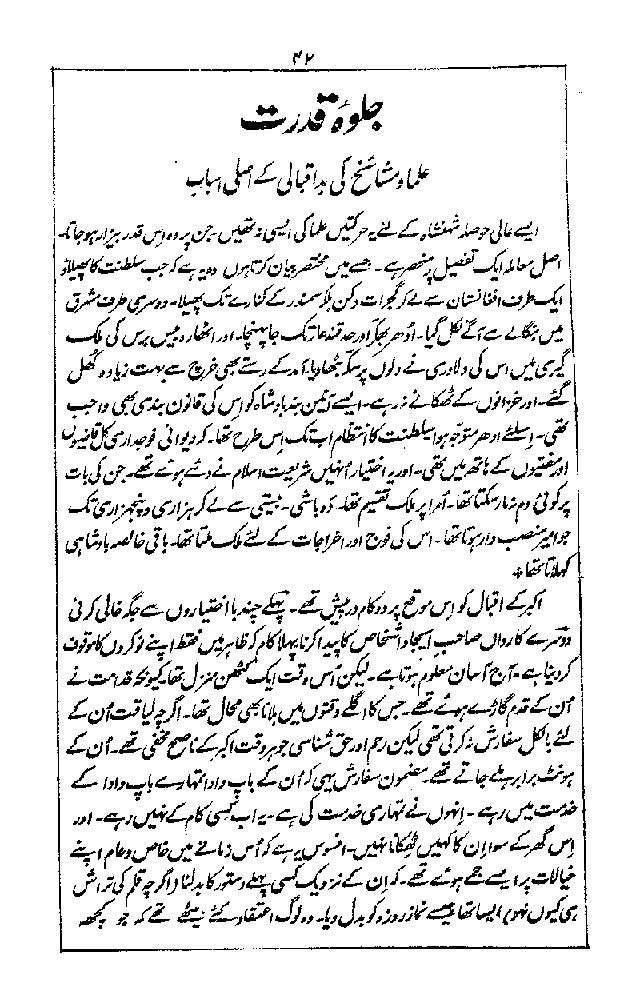 ۴۲
جلوۂ قدرت
علماء و مشائخ کی بداقبالی کے اصلی اسباب
ایسے عالی حوصلہ شہنشاہ کے لئے یہ حرکتیں علما کی ایسی نہ تھیں۔ جن پر وہ اس قدر بیزار ہو جاتا۔
اصل معاملہ ایک تفصیل پر منحصر ہے۔ جسے میں مختصر بیان کرتا ہوں وہ یہ ہے کہ جب سلطنت کا پھیلاؤ
ایک طرف افغانستان سے لے کر گجرات دکن بلکہ سمندر کے کنارے تک پھیلا۔ دوسری طرف مشرق
میں بنگالے سے آگے نکل گیا۔ اُدھر بھکر اور حد قندھار تک جا پہنچا۔ اور اٹھارہ بیس برس کی ملک
گیری میں اس کی دلاوری نے دلوں پر سکہ بٹھا دیا۔ آمد کے رستے بھی خرچ سے بہت زیادہ کھل
گئے۔ اور خزانوں کے ٹھکانے نہ رہے۔ ایسے آئین بند بادشاہ کو اس کی قانون بندی بھی واجب
تھی۔ اسلئے ادھر متوجہ ہوا سلطنت کا انتظام اب تک اس طرح تھا۔ کہ دیوانی فوجداری کل قاضیوں
اور مفتیوں کے ہاتھ میں تھی۔ اور یہ اختیار اُنہیں شریعت اسلام نے دئے ہوئے تھے۔ جن کی بات
پر کوئی دم نہ مار سکتا تھا۔ اُمرا پر ملک تقسیم تھا۔ دہ باشی۔ بیستی سے لے کر ہزاری و پنجہزاری تک
جو امیر منصب دار ہوتا تھا۔ اس کی فوج اور اخراجات کے لئے ملک ملتا تھا۔ باقی خالصہ بادشاہی
کہلاتا تھا۔
اکبر کے اقبال کو اِس موقع پر دو کام درپیش تھے۔ پہلے چند با اختیاروں سے جگہ خالی کرنی
دوسرے کارواں صاحب ایجاد اشخاص کا پیدا کرنا پہلا کام کہ ظاہر میں فقط اپنے نوکروں کا موقوف
کر دینا ہے۔ آج آسان معلوم ہوتا ہے۔ لیکن اُس وقت ایک کٹھن منزل تھا۔ کیونکہ قدامت نے
اُن کے قدم گاڑے ہوئے تھے۔ جس کا اگلے وقتوں میں ہلانا بھی محال تھا۔ اگرچہ لیاقت اُن کے
لئے بالکل سفارش نہ کرتی تھی لیکن رحم اور حق شناسی جو ہر وقت اکبر کے ناصح مخفی تھے۔ اُن کے
ہونٹ برابر ہلے جاتے تھے۔ مضمون سفارش یہی کہ اُن کے باپ دادا تمہارے باپ دادا کے
خدمت میں رہے۔ انہوں نے تمہاری خدمت کی ہے۔ یہ اب کسی کام کے نہیں رہے۔ اور
اِس گھر کے سوا اِن کا کہیں ٹھکانا نہیں۔ افسوس یہ ہے کہ اُس زمانے میں خاص و عام اپنے
خیالات پر ایسے جمے ہوئے تھے۔ کہ اِن کے نزدیک کسی پہلے دستور کا بدلنا (اگرچہ قلم کی تراش
ہی کیوں نہ ہو) ایسا تھا جیسے نماز روزہ کو بدل دیا۔ وہ لوگ اعتقاد کئے بیٹھے تھے کہ جو کچھ